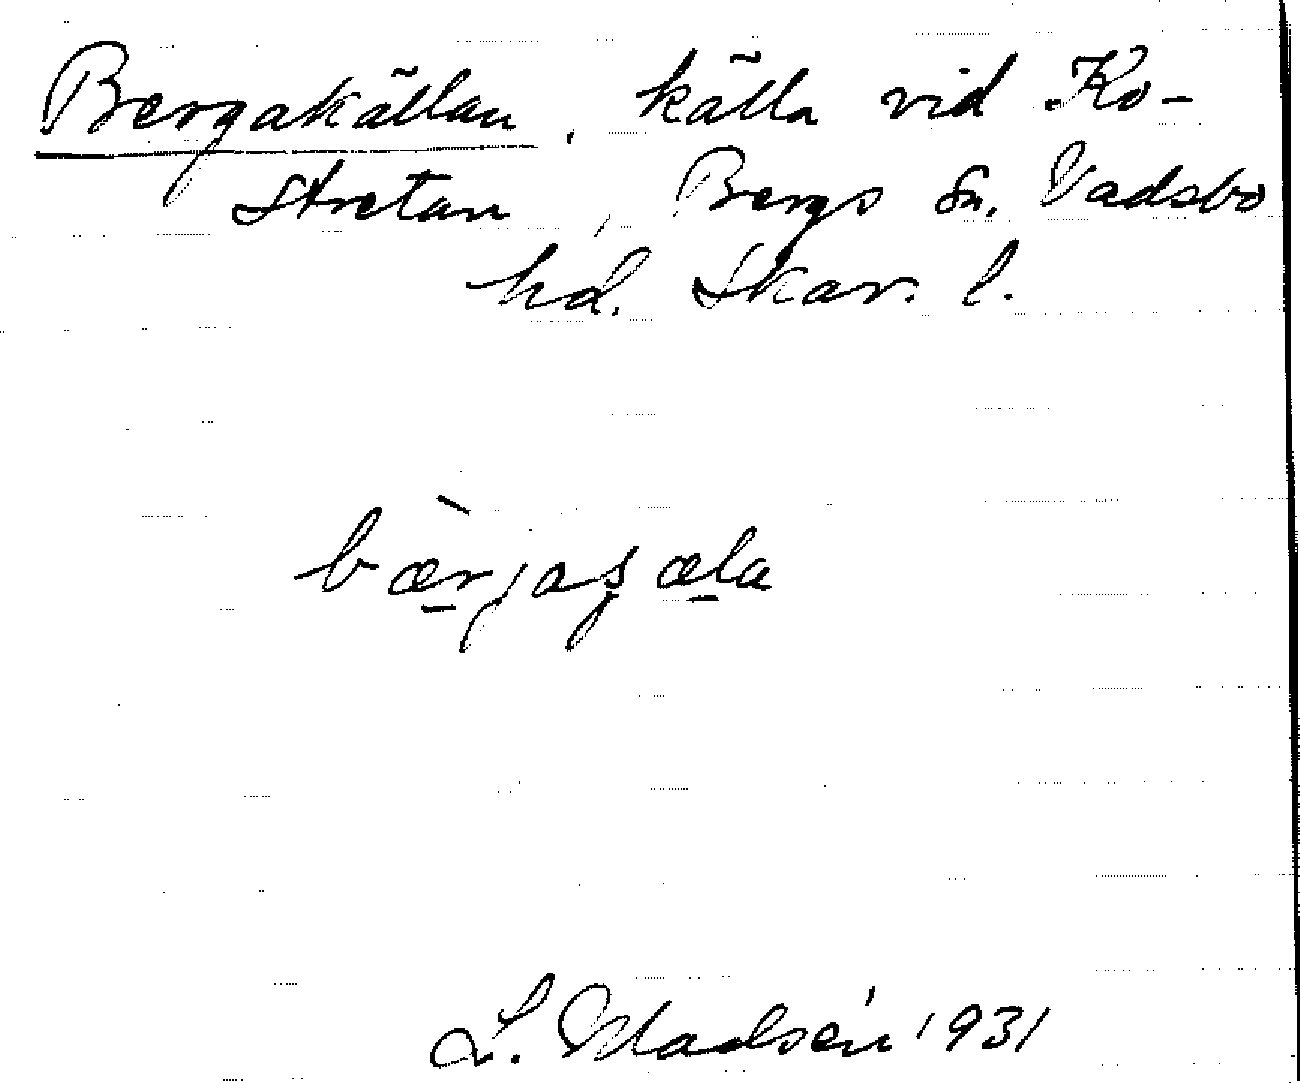 Bergakällan, källa vid Ko-
stretan, Bergs sn, Vadsbo
hd. Skar. l.
bæ̀rjaʂæla
L. Madsén 1931